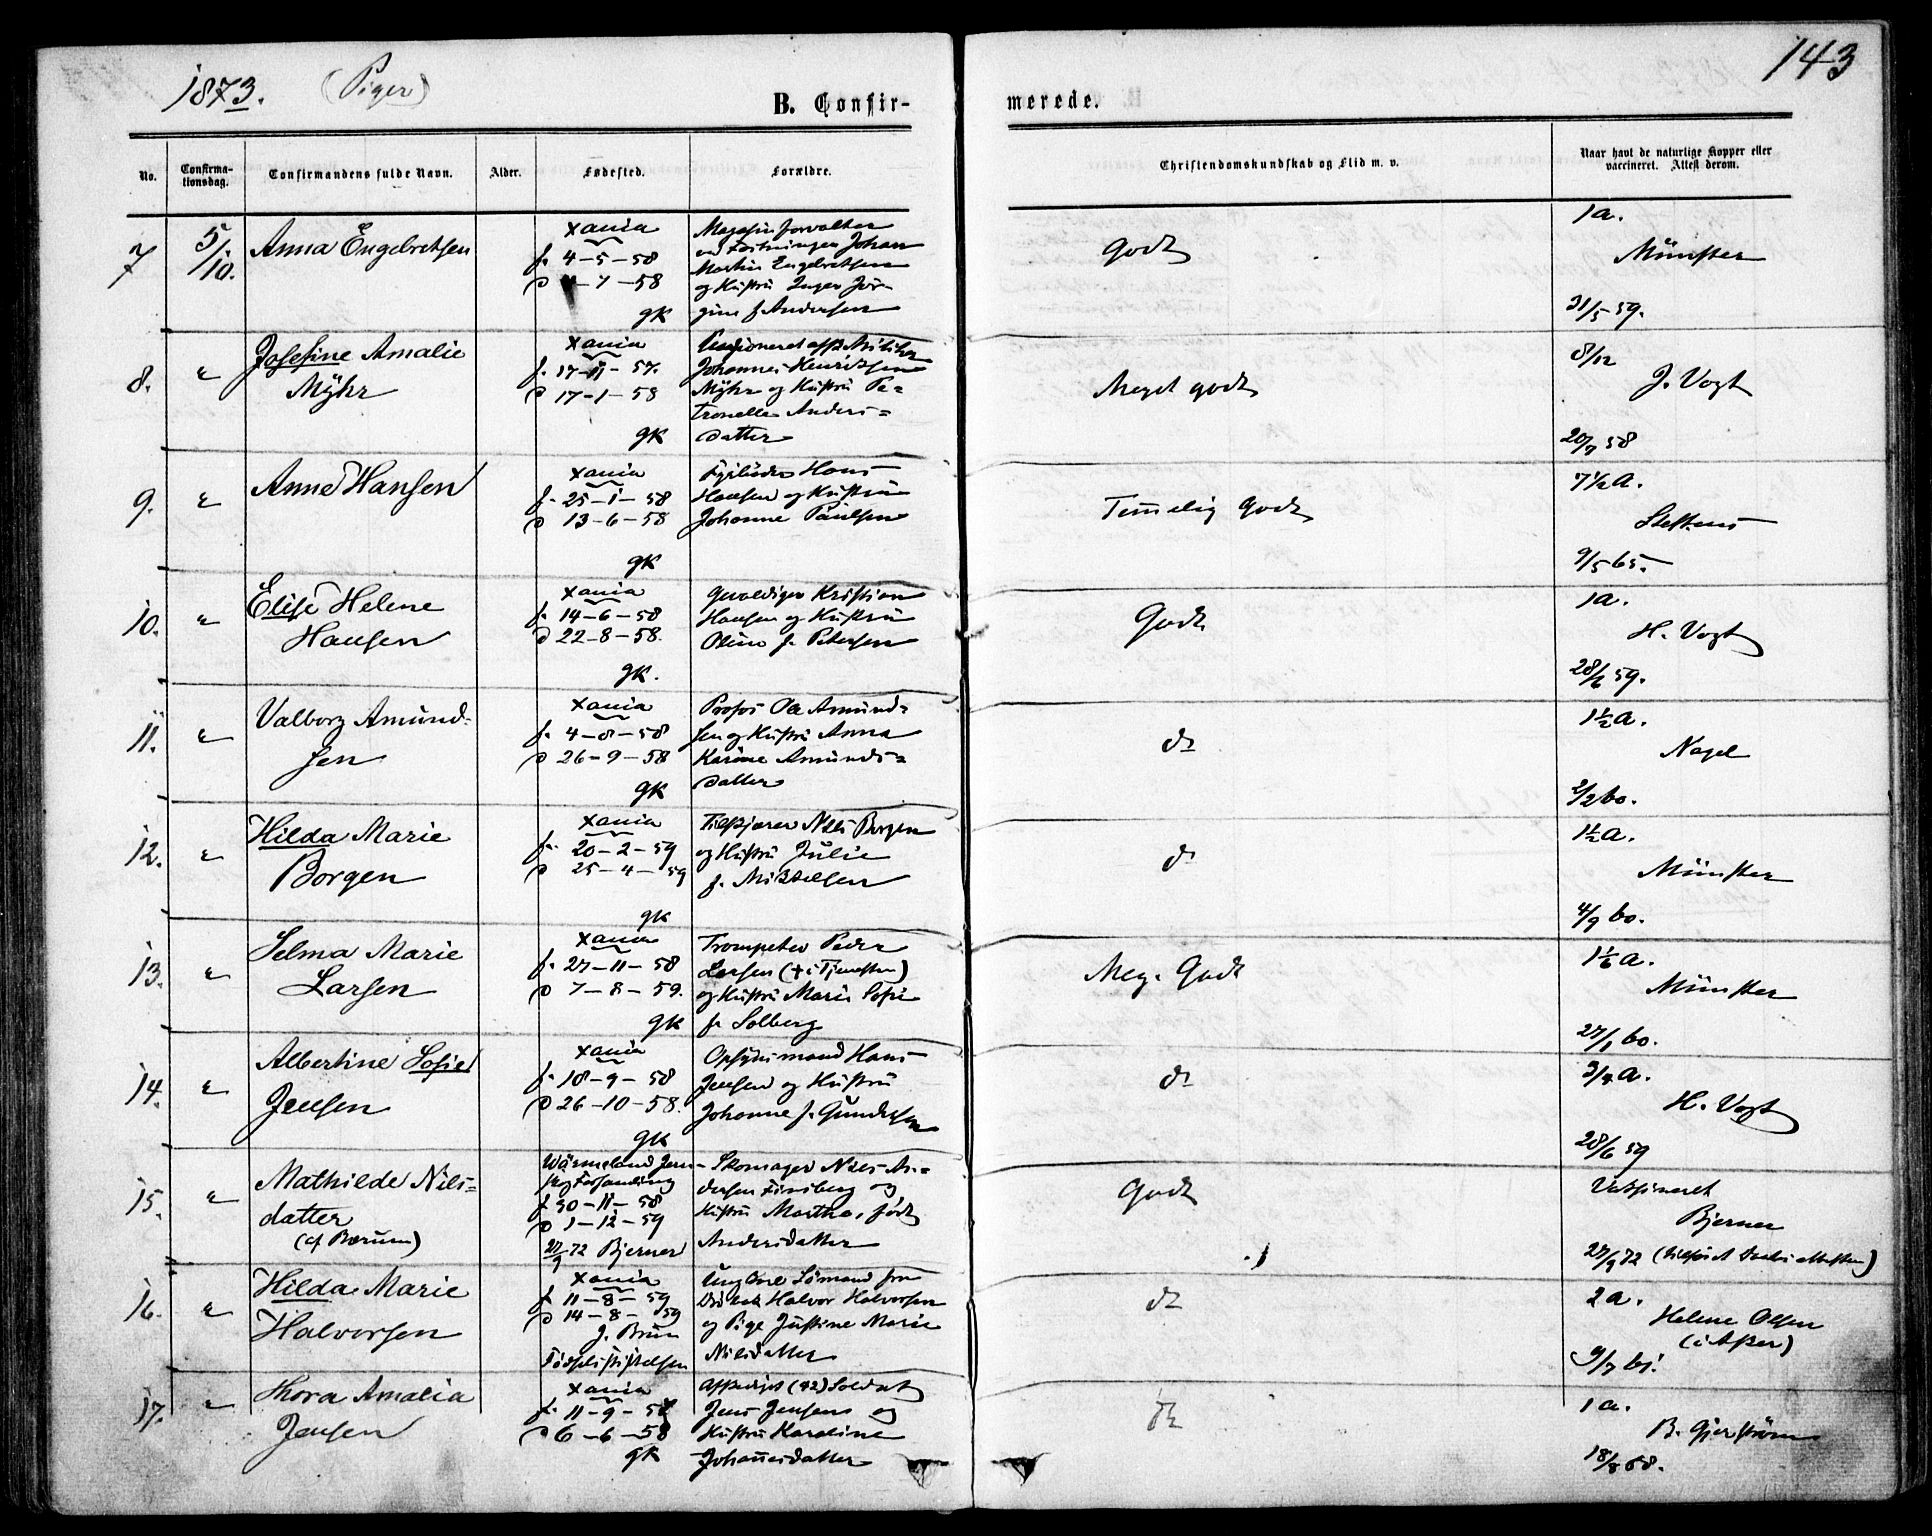 1873. (Piger)
143
B. Confir-
merede.
No.
Confirma-
tionsdag.
Confirmandens fulde Navn.
Alder.
Fødested.
Forældre.
Christendomskundskab og Flid m. v.
Naar havt de naturlige Kopper eller
vaccineret. Attest derom.
7
5/10.
Anna Engebretsen
xania
f. 4-5-58
D 4-7-58
gk
Magasinforvalter
ved Fæstningen Johan
Martin Engebretsen
og Hustru Inger Jør-
gine f. Andersen
Godt
1 a.
Münster
31/5 59.
8.
"
Josefine Amalie
Myhr
xania
f. 17-11-57.
D 17-1-58
gk
Johannes Henriksen
Myhr og Hustru Pe-
tronelle Anders-
datter
Meget godt
8/12
J. Vogt
20/7 58
9.
"
Anne Hansen
xania
f. 25-1-58
D 13-6-58
gk
Hans
Hansen og Hustru
Johanne Paulsen
Temmelig Godt
7 1/2 a.
Steffens
9/5 65.
10.
"
Elise Helene
Hansen
xania
f. 14-6-58
D 22-8-58.
gk.
Gevaldiger Kristian
Hansen og Hustru
Oline f. Petersen
Godt
1 a.
H. Vogt
28/6 59.
11.
"
Valborg Amund-
sen
xania
f. 4-8-58
D 26-9-58
gk
Profos Ole Amund-
sen og Hustru Anna
Karine Amunds-
datter
do
1 1/2 a.
Nagel
2/2 60.
12.
"
Hilda Marie
Borgen
xania
f. 20-2-59
D 25-4-59
gk
Tilskjærer Nils Borgen
og Hustru Julie
f. Mikkelsen
do
1 1/2 a.
Münster
4/9 60.
13.
"
Selma Marie
Larsen
xania
f. 27-11-58
D 7-8-59.
gk
Trompeter Peder
Larsen (+ i Tjenesten)
og Hustru Marie Sofie
f. Solberg
Meg. Godt
1 1/6 a.
Münster
27/1 60.
14.
"
Albertine Sofie
Jensen
xania
f. 18-9-58
D 26-10-58.
gk
Opsynsmand Hans
Jensen og Hustru
Johanne f. Gundersen
do
3/4 a.
H. Vogt
28/6 59
15.
"
Mathilde Nils-
datter
(af Bærum)
Wärmeland Jern-
skog Forsamling
f 30-11-58
D 1-12-59
27/9 72 Bjerner
Skomager Nils An-
dersen Finsberg og
Hustru Martha, født
Andersdatter
Godt
Vaksineret
Bjerner
27/9 72
16.
"
Hilda Marie
Halvorsen
xania
f 11-8-59
D 14-8-59
J. Brun
Fødselsstiftelsen
Ungkarl Sømand fra
Halvor Halvorsen
og Pige Justine Marie
Nilsdatter
do
2 a.
Helene Olsen
(i Asker)
9/7 61.
17.
"
Thora Amalia
Jensen
xania
f. 11-9-58
D 6-6-58
gk
Afskediget (42) Soldat
Jens Jensen og
Hustru Karoline
Johannesdatter
do
1 a.
B. Gjerstrøm
18/8 60.